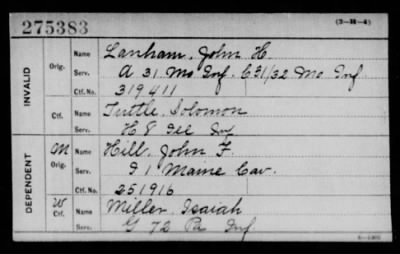 275383 (3-M-4)
INVALID Orig. Name Lanham, John H.
Serv. A 31 Mo Inf. C 31/32 Mo Inf.
Ctf. No. 319411
Ctf. Name Tuttle, Solomon
Serv. H 8 Ill Inf
DEPENDENT M Orig. Name Hill, John F.
Serv. I 1 Maine Cav.
Ctf. No. 251916
W Ctf. Name Miller, Isaiah
Serv. G 72 Pa Inf